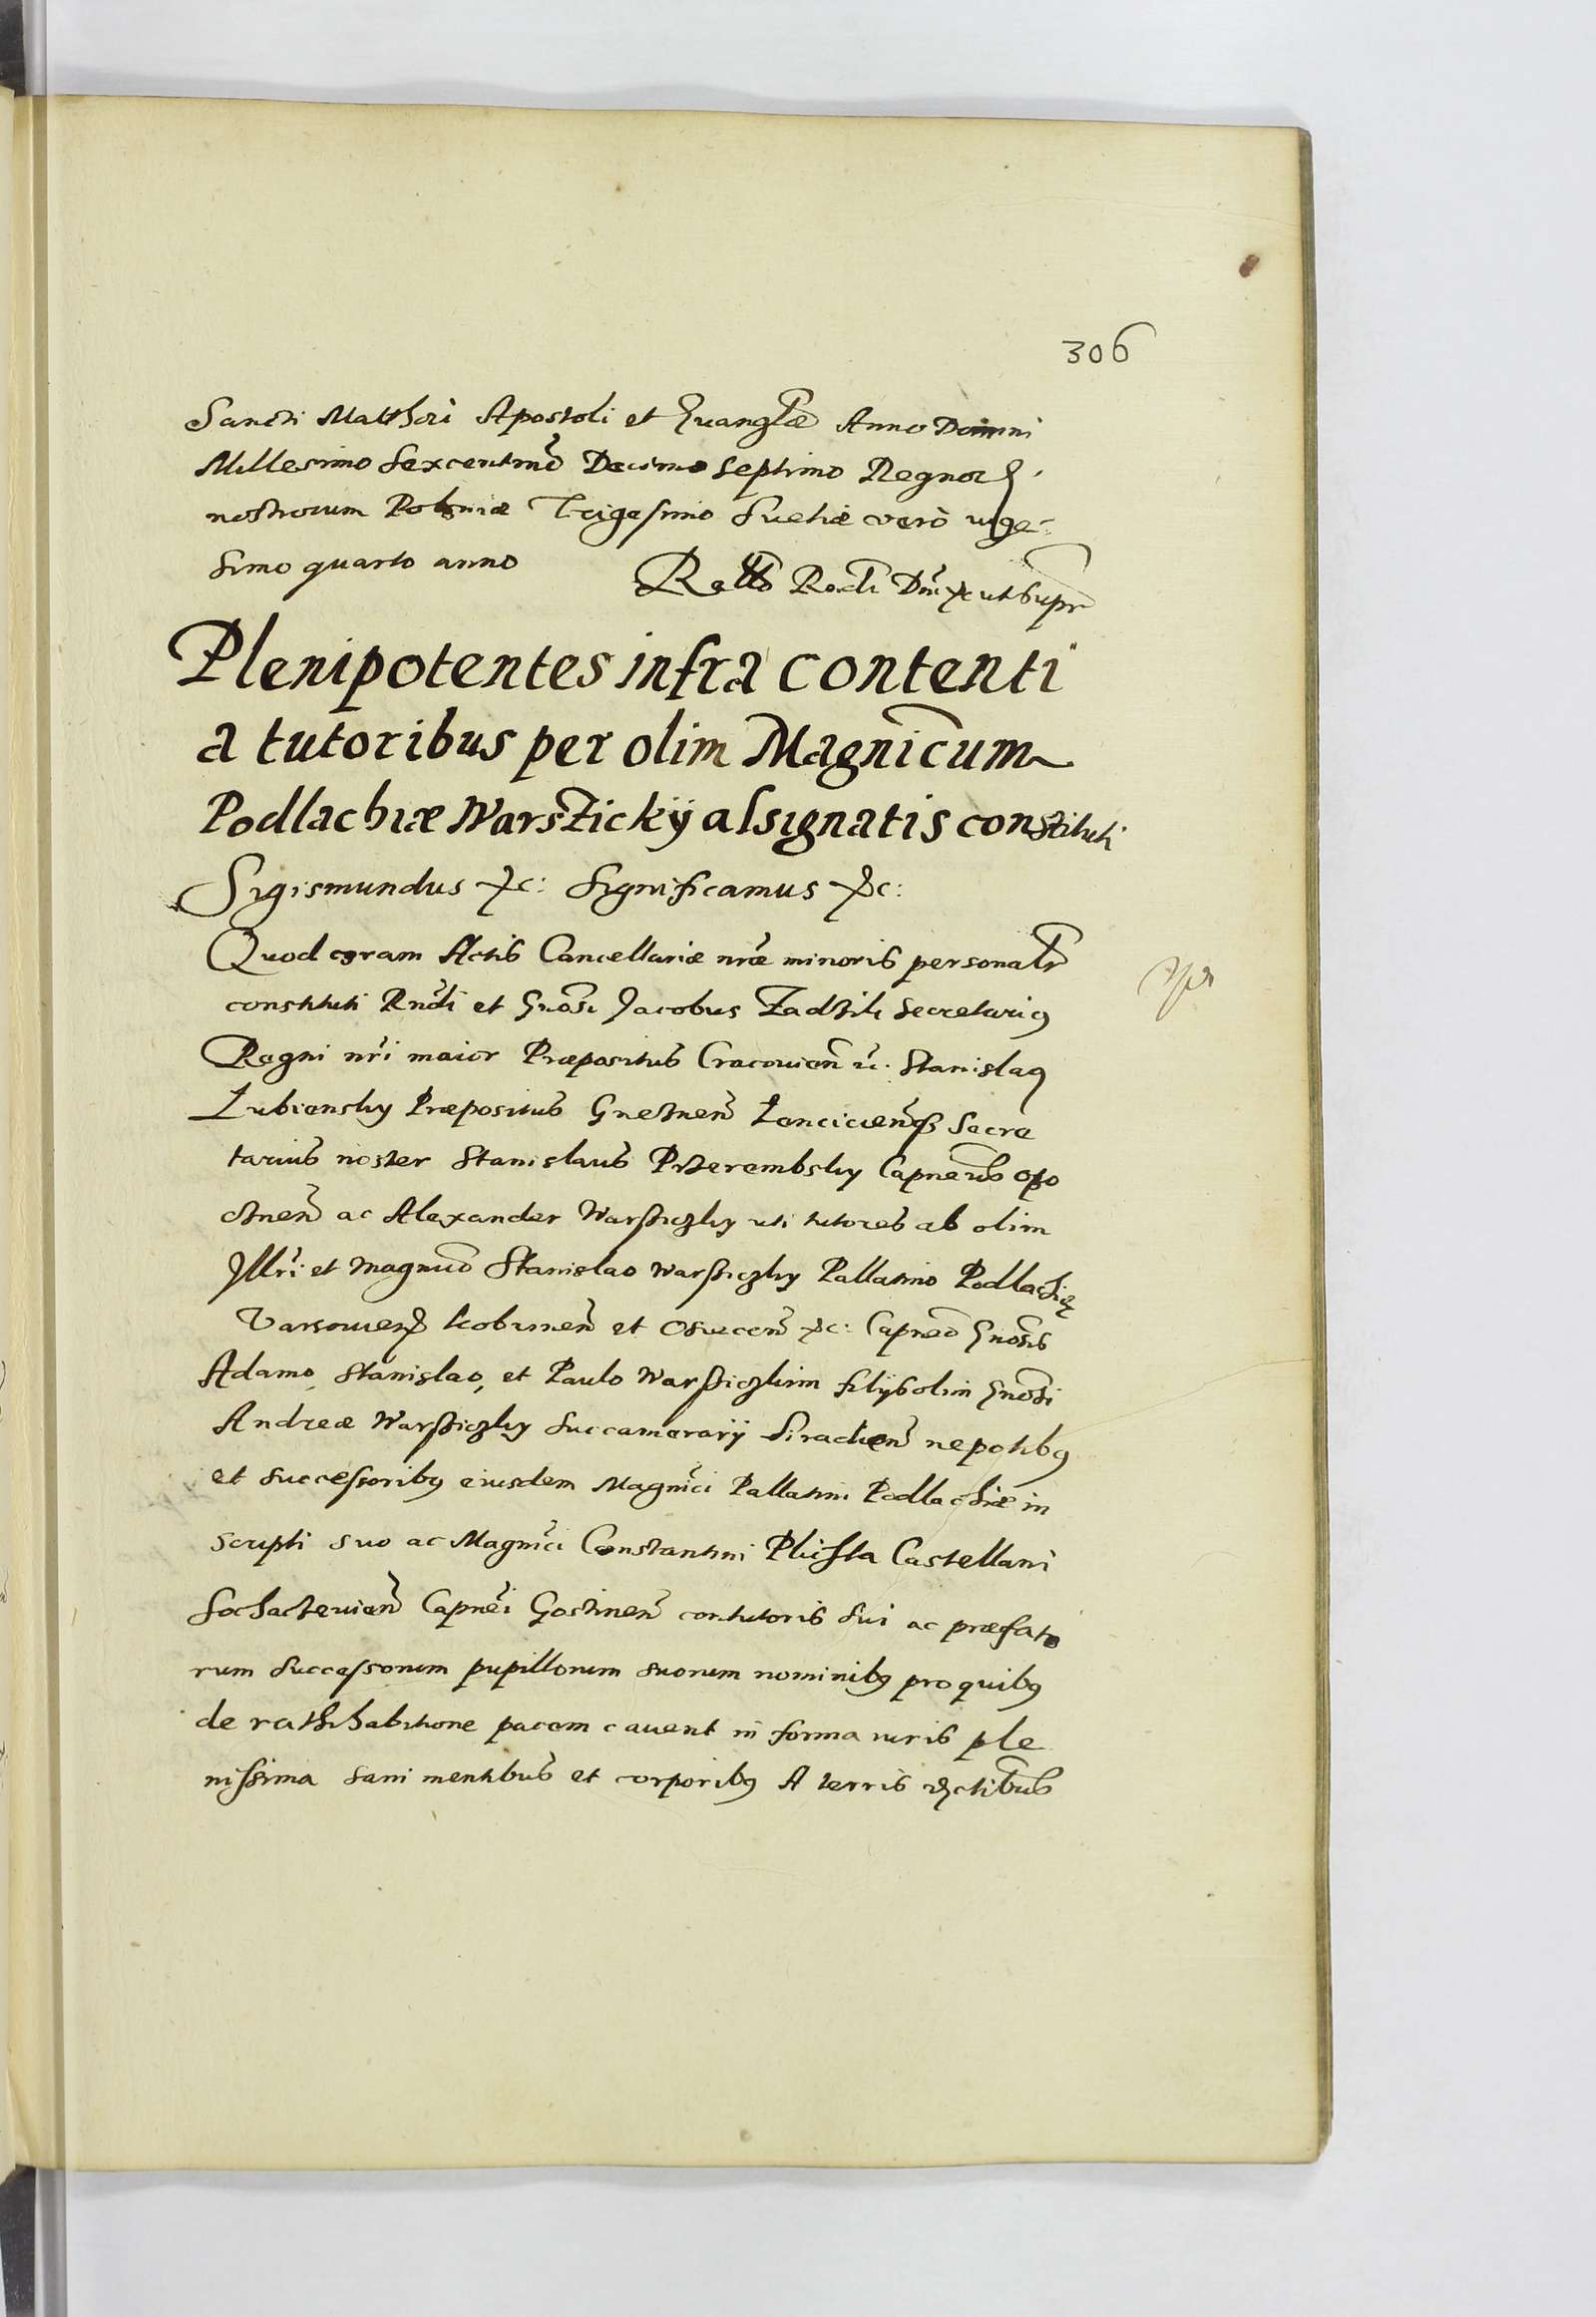 306
Sancti Matthæi Apostoli et Euanglæ Anno Domini
Millesimo Sexcentmo Decimo Septimo Regnor
nostrorum Poloniæ Trigesimo Suetiæ verò vige-
simo quarto anno
Rallo Rndi Dni &c ut supr
Plenipotentes infra contenti
a tutoribus per olim Magnicum
Podlachiæ Warszickÿ assignatis constituti
Sigismundus &c: Significamus &c:
Quod coram Actis Cancellariæ nræ minoris personalr
constituti Rndi et Gnosi Jacobus Zadzik Secretarius
Regni nri maior Præpositus Cracouien &c. Stanislaus
Lubiensky Præpositus Gneznen Lanciciensq Secre
tarius noster Stanislaus Przerembsky Capneus Opo
cznen ac Alexander Warsziczky uti tutores ab olim
Illri et Magnco Stanislao Warszizky Pallatino Podlachię
Varsouien Kobrinen et Osuecen &c: Capneo Gnosis
Adamo, Stanislao, et Paulo Warsziczkim filÿs olim Gnosi
Andreæ Warsziczky Succamerarÿ Siradien nepotibus
et successoribus eiusdem Magnici Pallatini Podlachiæ in
scripti suo ac Magnici Constantini Plichta Castellani
Sochaczeuien Capnei Gostinen contutoris sui ac præfato
rum successorum pupillorum suorum nominibus pro quibus
de rathihabitione pacem cauent in forma iuris ple
nissima sani mentibus et corporibus A terris